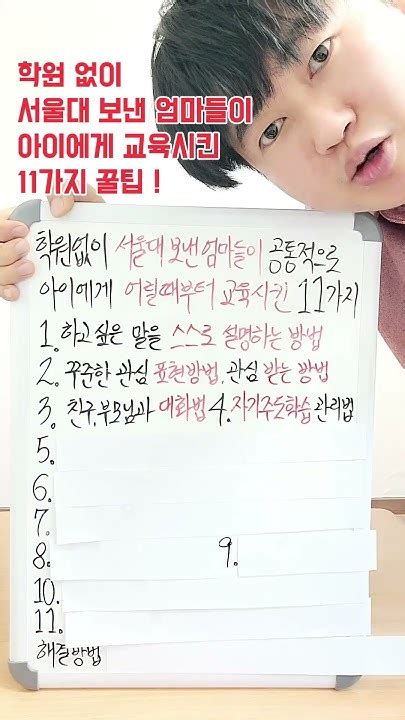 학원 없이
서울대 보낸 엄마들이
아이에게 교육시킨
11가지 꿀팁 !
학원없이 서울대 보낸 엄마들이 공통적으로
아이에게 어릴때부터 교육시킨 11가지
1. 하고 싶은 말을 스스로 설명하는 방법
2. 꾸준한 관심 표현방법, 관심 받는 방법
3. 친구,부모님과 대화법 4.자기주도학습 관리법
5.
6.
7.
8. 9.
10.
11.
해결방법